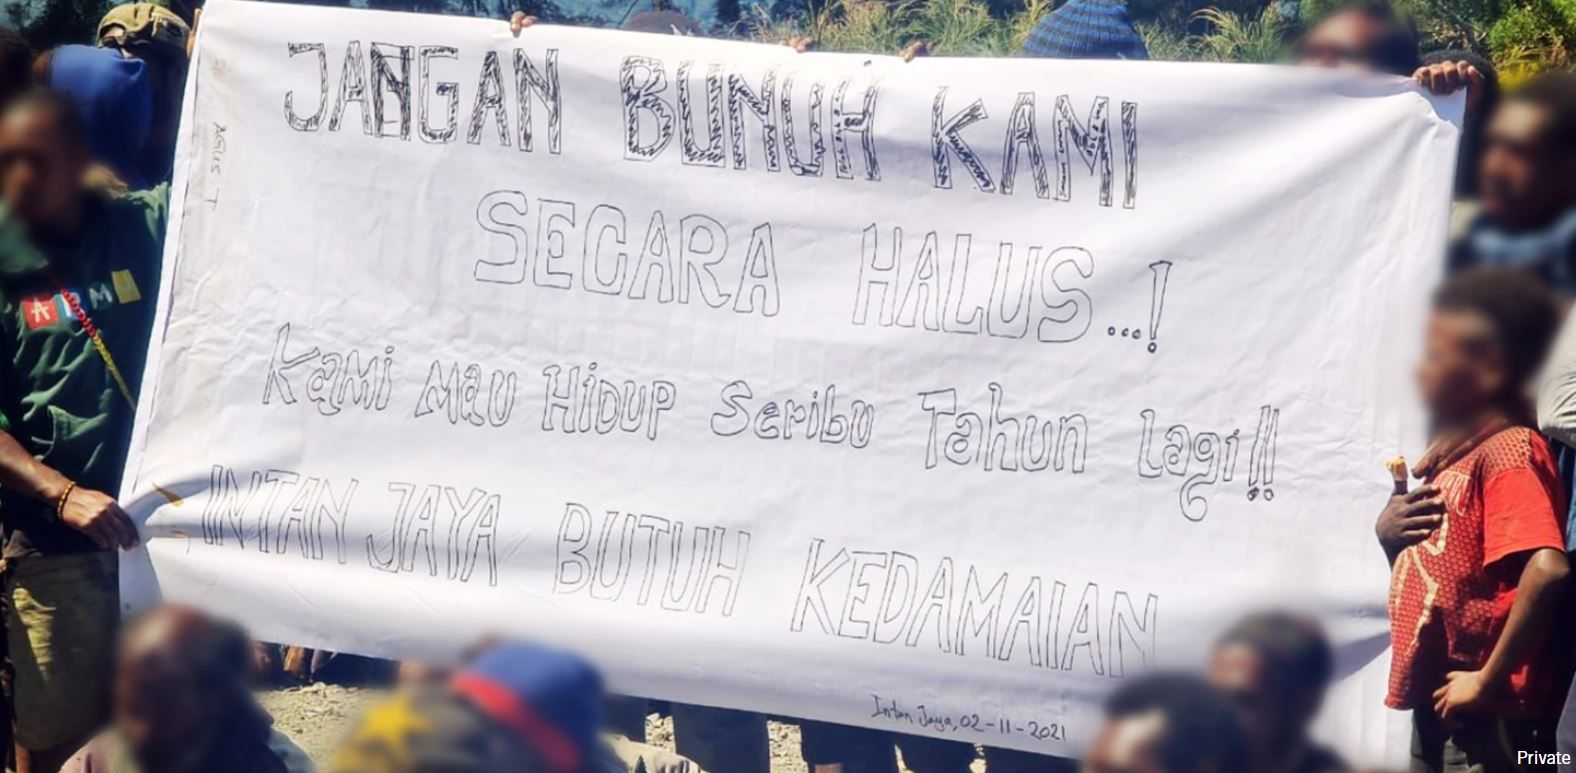 JANGAN BUNUH KAMI
SECARA HALUS...!
Kami Mau HiDUP Seribu Tahun Lagi!!
INTAN JAYA BUTUH KEDAMAIAN
Intan Jaya, 02-11-2021
AGUS T
Private